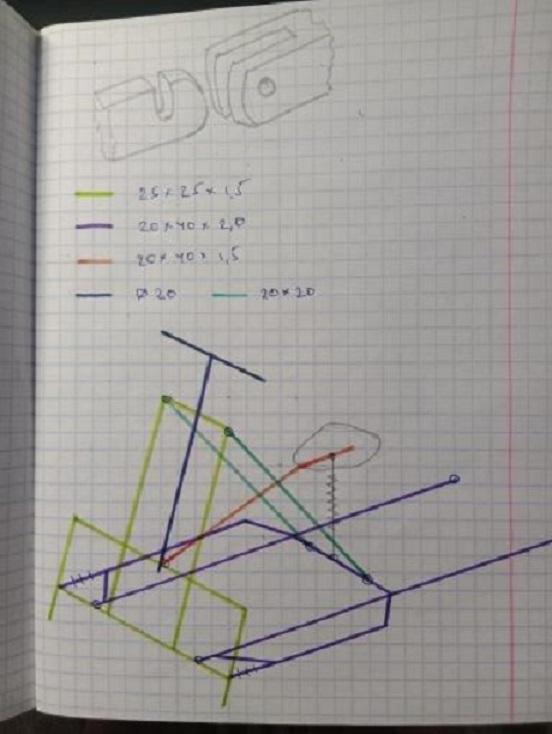 25×25×1,5
20×40×2,0
20×40×1,5
Ø 20 20×20